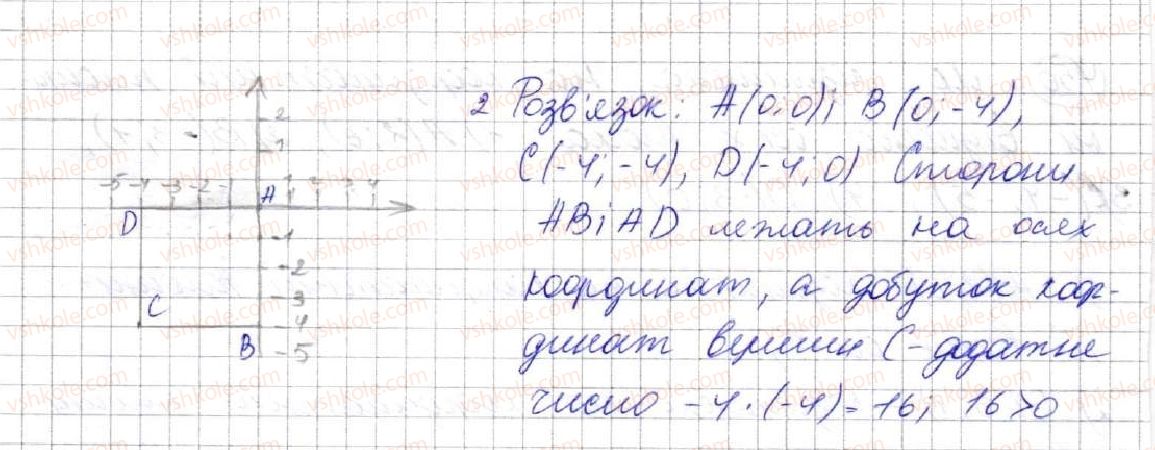 2 Розв'язок: A(0;0); B(0;-4),
C(-4;-4), D(-4;0) Сторони
AB i AD лежать на осях
координат, а добуток коор-
динат вершини C - додатне
число -4·(-4)=16; 16>0
2
1
-5 -4 -3 -2 -1 A 1 2 3 4
D
-1
-2
C -3
-4
B -5
vshkole.com